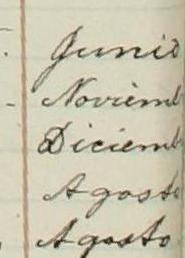 Junio
Noviemb
Diciemb
Agosto
Agosto